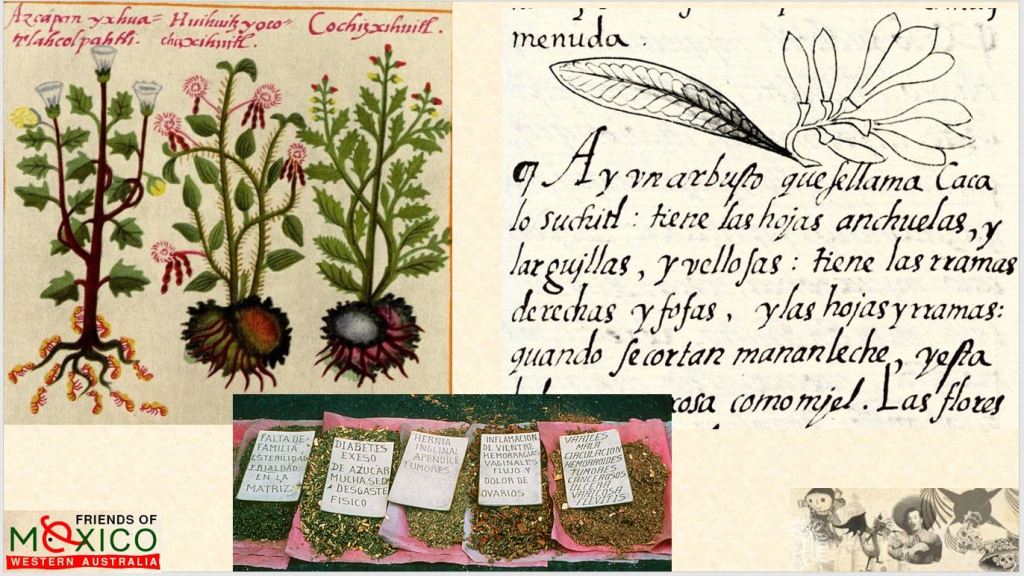 Azcapan yxhua= Huihuitzyoco= Cochizxihuitl.
tlahcolpahtli. chizxihuitl.
menuda.
¶ Ay vn arbusto que se llama Caca
lo suchitl: tiene las hojas anchuelas, y
larguillas, y vellosas: tiene las rramas
derechas y fofas, y las hojas y rramas:
quando se cortan manan leche, y esta
cosa como mjel. Las flores
FALTA DE
FAMILIA,
ESTERILIDAD
FRIALDAD
EN LA
MATRIZ.
DIABETES
EXESO
DE AZUCAR
MUCHA SED
DESGASTE
FISICO
HERNIA
INGLINAL
APENDICE
TUMORES
INFLAMACION
DE VIENTRE
HEMORRAGIAS
VAGINALES
FLUJO Y
DOLOR DE
OVARIOS
VARICES
MALA
CIRCULACION
HEMORROIDES
TUMORES
CANCEROSOS
ULCERA
VARICOSA
FLEVITIS
FRIENDS OF
MEXICO
WESTERN AUSTRALIA